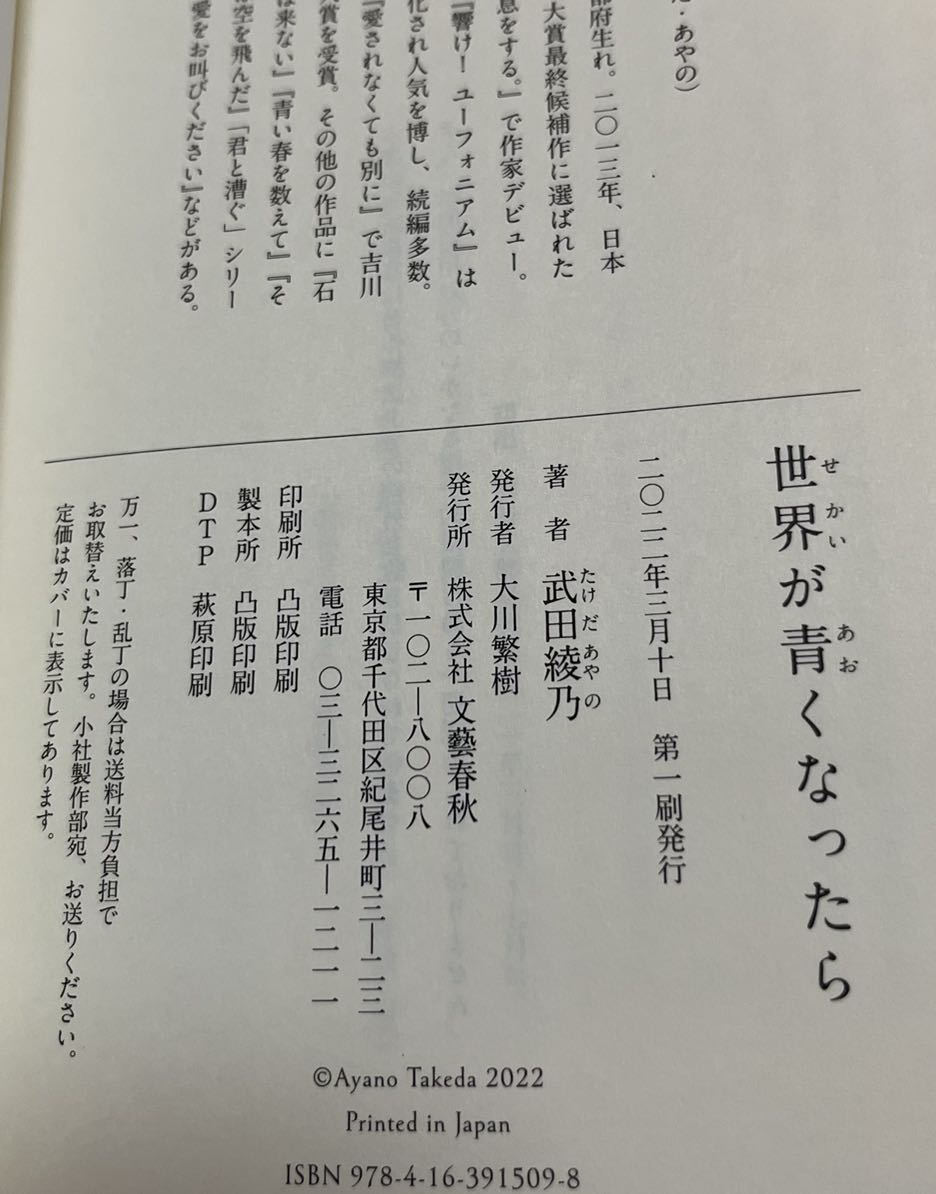 ・あやの)
府生れ。二〇一三年、日本
大賞最終候補作に選ばれた
息をする。』で作家デビュー。
『響け! ユーフォニアム』は
化され人気を博し、続編多数。
『愛されなくても別に』で吉川
賞を受賞。その他の作品に『石
は来ない』『青い春を数えて』『そ
空を飛んだ』「君と漕ぐ」シリー
愛をお叫びください』などがある。
世界が青くなったら
せかい
あお
二〇二二年三月十日 第一刷発行
著者 武田綾乃
たけだあやの
発行者 大川繁樹
発行所 株式会社 文藝春秋
〒一〇二―八〇〇八
東京都千代田区紀尾井町三―二三
電話 〇三―三二六五―一二一一
印刷所 凸版印刷
製本所 凸版印刷
DTP 萩原印刷
万一、落丁・乱丁の場合は送料当方負担で
お取替えいたします。小社製作部宛、お送りください。
定価はカバーに表示してあります。
©Ayano Takeda 2022
Printed in Japan
ISBN 978-4-16-391509-8